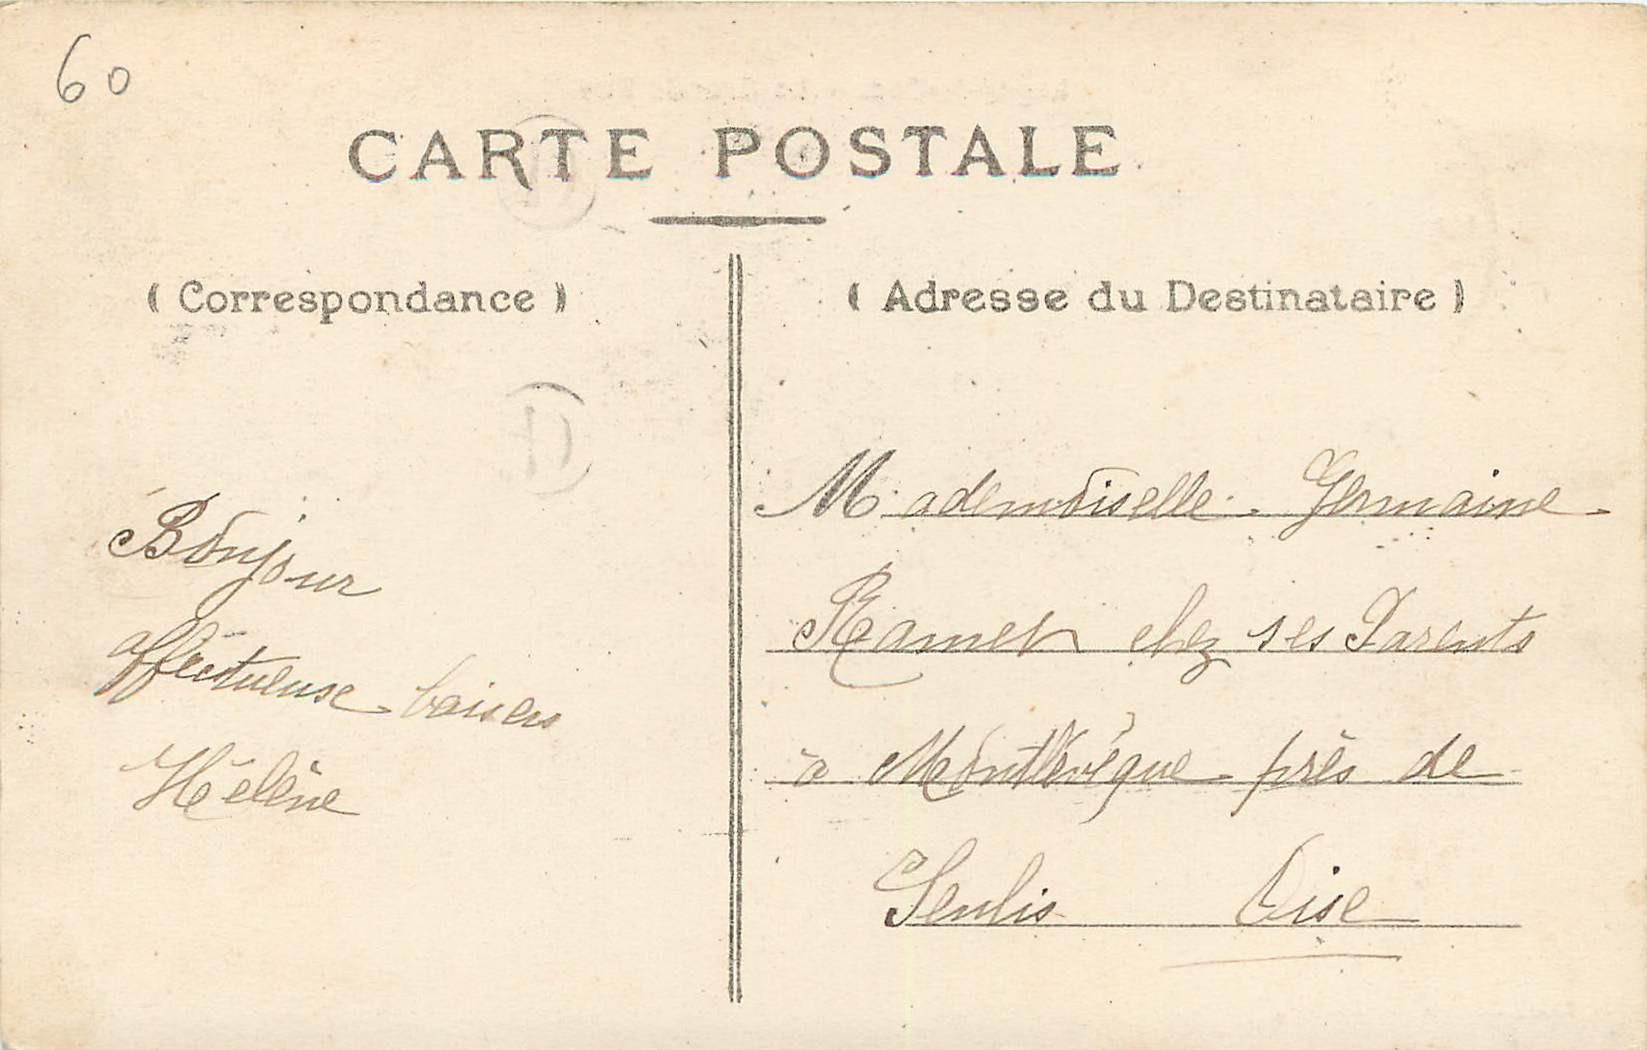 60
CARTE POSTALE
( Correspondance )
( Adresse du Destinataire )
Bonjour
affectueuse baisers
Hélène
Mademoiselle Germaine
Ramet chez ses Parents
à Montlévêque près de
Senlis Oise